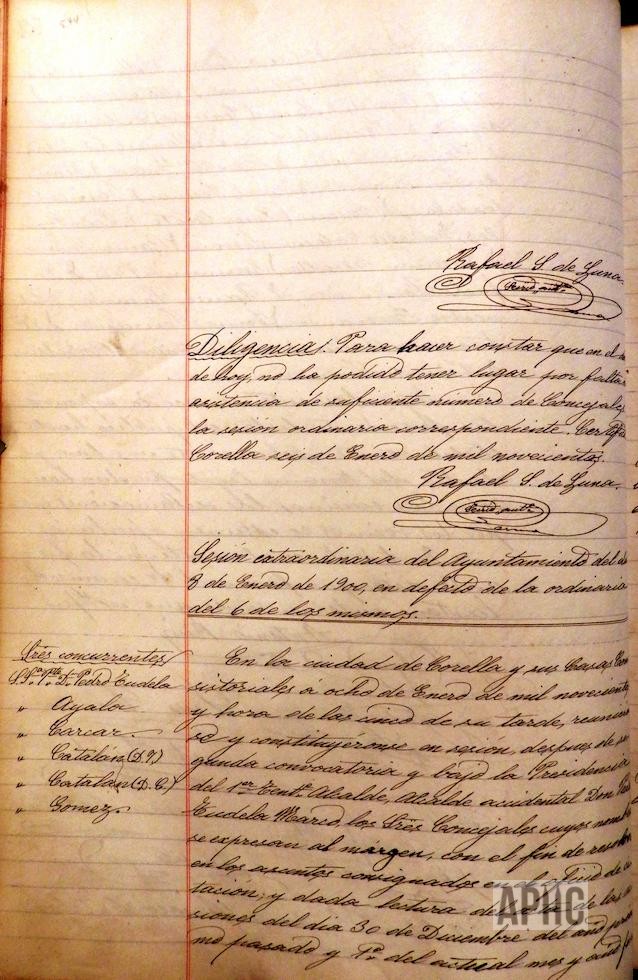 544
Rafael S. de Luna.
Diligencia. Para hacer constar que en el
de hoy, no ha podido tener lugar por falta
asistencia de suficiente número de Concejales
la sesion ordinaria correspondiente. Certifico
Corella seis de Enero de mil novecientos.
Rafael S. de Luna.
Sesión extraordinaria del Ayuntamiento del
8 de Enero de 1900, en defecto de la ordinaria
del 6 de los mismos.
Sres concurrentes
D. Pedro Eudela
" Ayala
" Carcar
" Catalán (D. I)
" Catalán (D. C.)
" Gomez
En la ciudad de Corella y sus Casas Con
sistoriales á ocho de Enero de mil novecientos
y hora de las cinco de su tarde, reunieron
se y constituyéronse en sesión, despues de se
gunda convocatoria y bajo la Presidencia
del 1er Tente Alcalde, Alcalde accidental Don
Eudela los Sres Concejales cuyos nombres
se expresan al margen, con el fin de resolver
en los asuntos consignados en la
tacion; y dada lectura de las
siones del dia 30 de Diciembre del año
mo pasado y 1º del actual mes y año
APHC